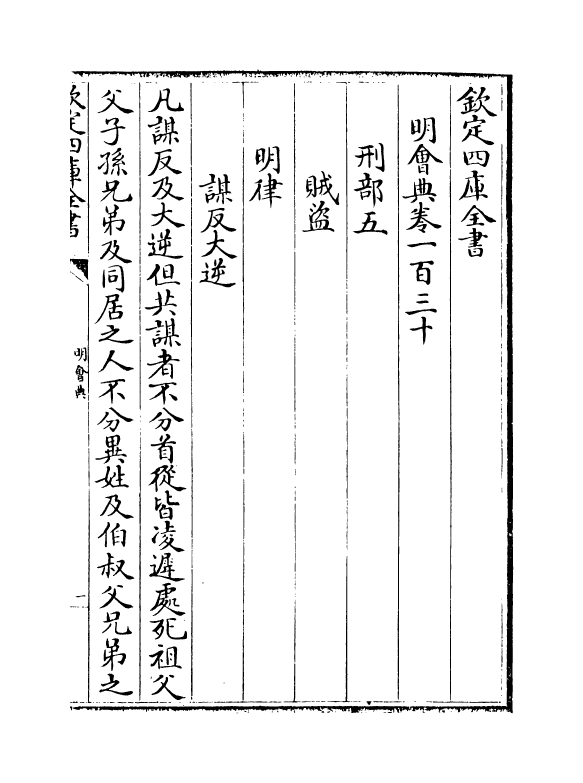 欽定四庫全書
明會典卷一百三十
刑部五
賊盜
明律
謀反大逆
凡謀反及大逆但共謀者不分首從皆凌遲處死祖父
父子孫兄弟及同居之人不分異姓及伯叔父兄弟之
欽定四庫全書
明會典
一